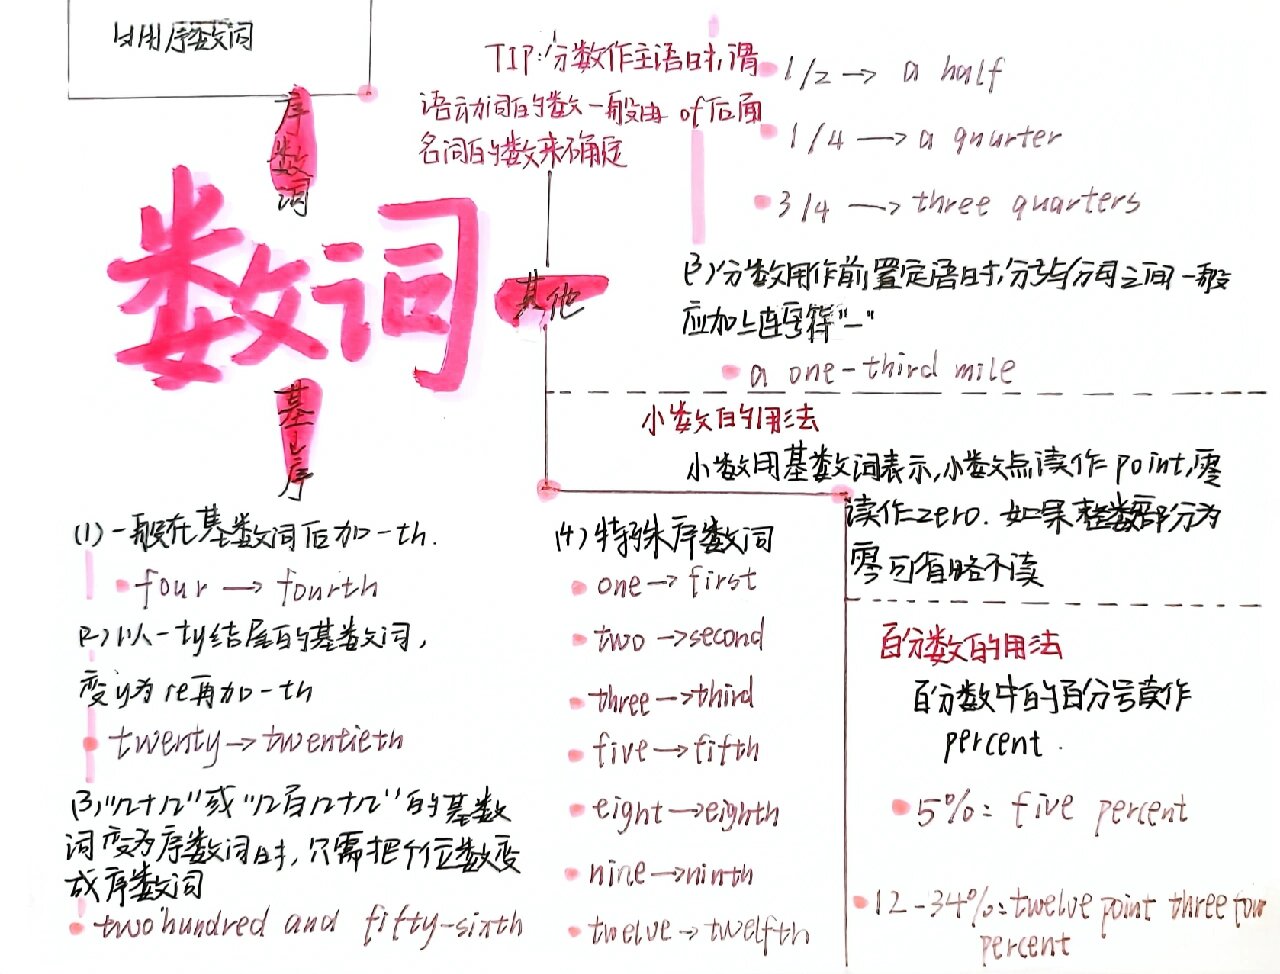 时用序数词
序数词
数词
基变序
其他
TIP:分数作主语时,谓
语动词的数一般由 of后面
名词的数来确定
1/2 → a half
1/4 → a qnurter
3/4 → three quarters
(3)分数用作前置定语时,分子与分母之间一般
应加上连字符"-"
a one-third mile
小数的用法
小数用基数词表示,小数点读作point,零
读作zero. 如果整数部分为
零可省略不读
百分数的用法
百分数中的百分号读作
percent.
5%= five percent
12-34%=twelve point three four
percent
(1)一般在基数词后加-th.
four → fourth
(2)以-ty结尾的基数词,
变y为ie再加-th
twenty→twentieth
(3)"几十几"或"几百几十几"的基数
词变为序数词时,只需把个位数变
成序数词
two hundred and fifty-sixth
(4)特殊序数词
one→first
two→second
three→third
five→fifth
eight→eighth
nine→ninth
twelve→twelfth